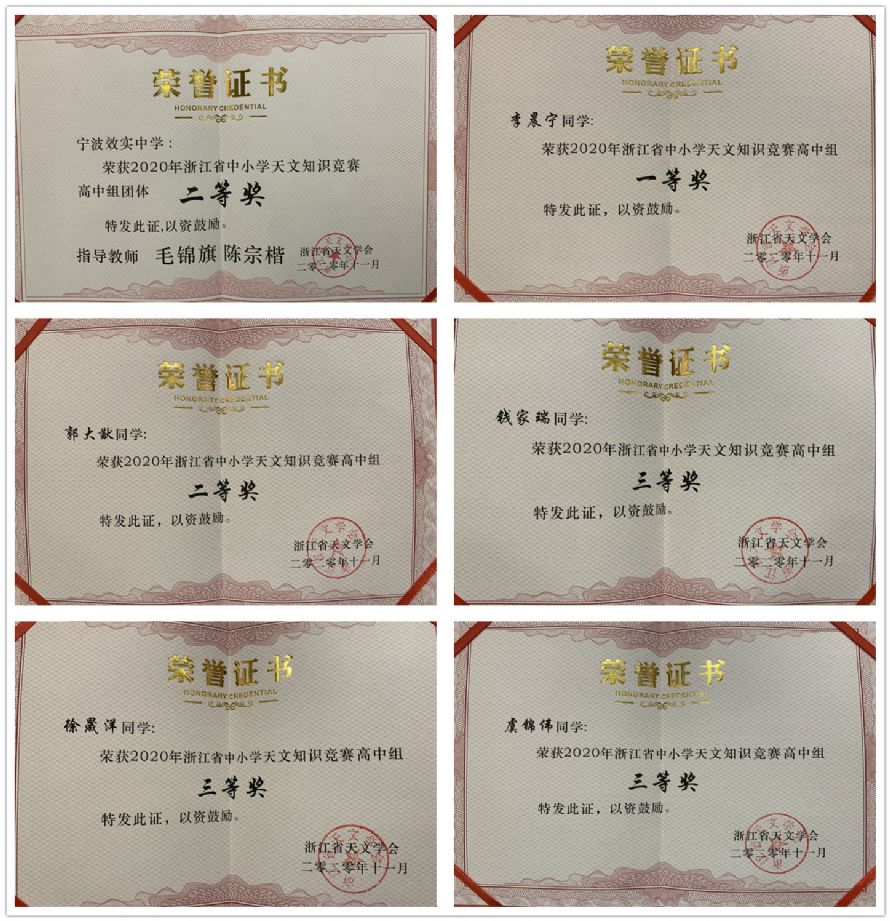 荣誉证书
HONORARY CREDENTIAL
宁波效实中学：
荣获2020年浙江省中小学天文知识竞赛
高中组团体 二等奖
特发此证,以资鼓励。
指导教师 毛锦旗 陈宗楷
浙江省天文学会
二〇二〇年十一月
荣誉证书
HONORARY CREDENTIAL
李晨宁同学:
荣获2020年浙江省中小学天文知识竞赛高中组
一等奖
特发此证，以资鼓励。
浙江省天文学会
二〇二〇年十一月
荣誉证书
HONORARY CREDENTIAL
郭大猷同学:
荣获2020年浙江省中小学天文知识竞赛高中组
二等奖
特发此证，以资鼓励。
浙江省天文学会
二〇二〇年十一月
荣誉证书
HONORARY CREDENTIAL
钱家瑞同学:
荣获2020年浙江省中小学天文知识竞赛高中组
三等奖
特发此证，以资鼓励。
浙江省天文学会
二〇二〇年十一月
荣誉证书
HONORARY CREDENTIAL
徐晟洋同学:
荣获2020年浙江省中小学天文知识竞赛高中组
三等奖
特发此证，以资鼓励。
浙江省天文学会
二〇二〇年十一月
荣誉证书
HONORARY CREDENTIAL
虞锦伟同学:
荣获2020年浙江省中小学天文知识竞赛高中组
三等奖
特发此证，以资鼓励。
浙江省天文学会
二〇二〇年十一月